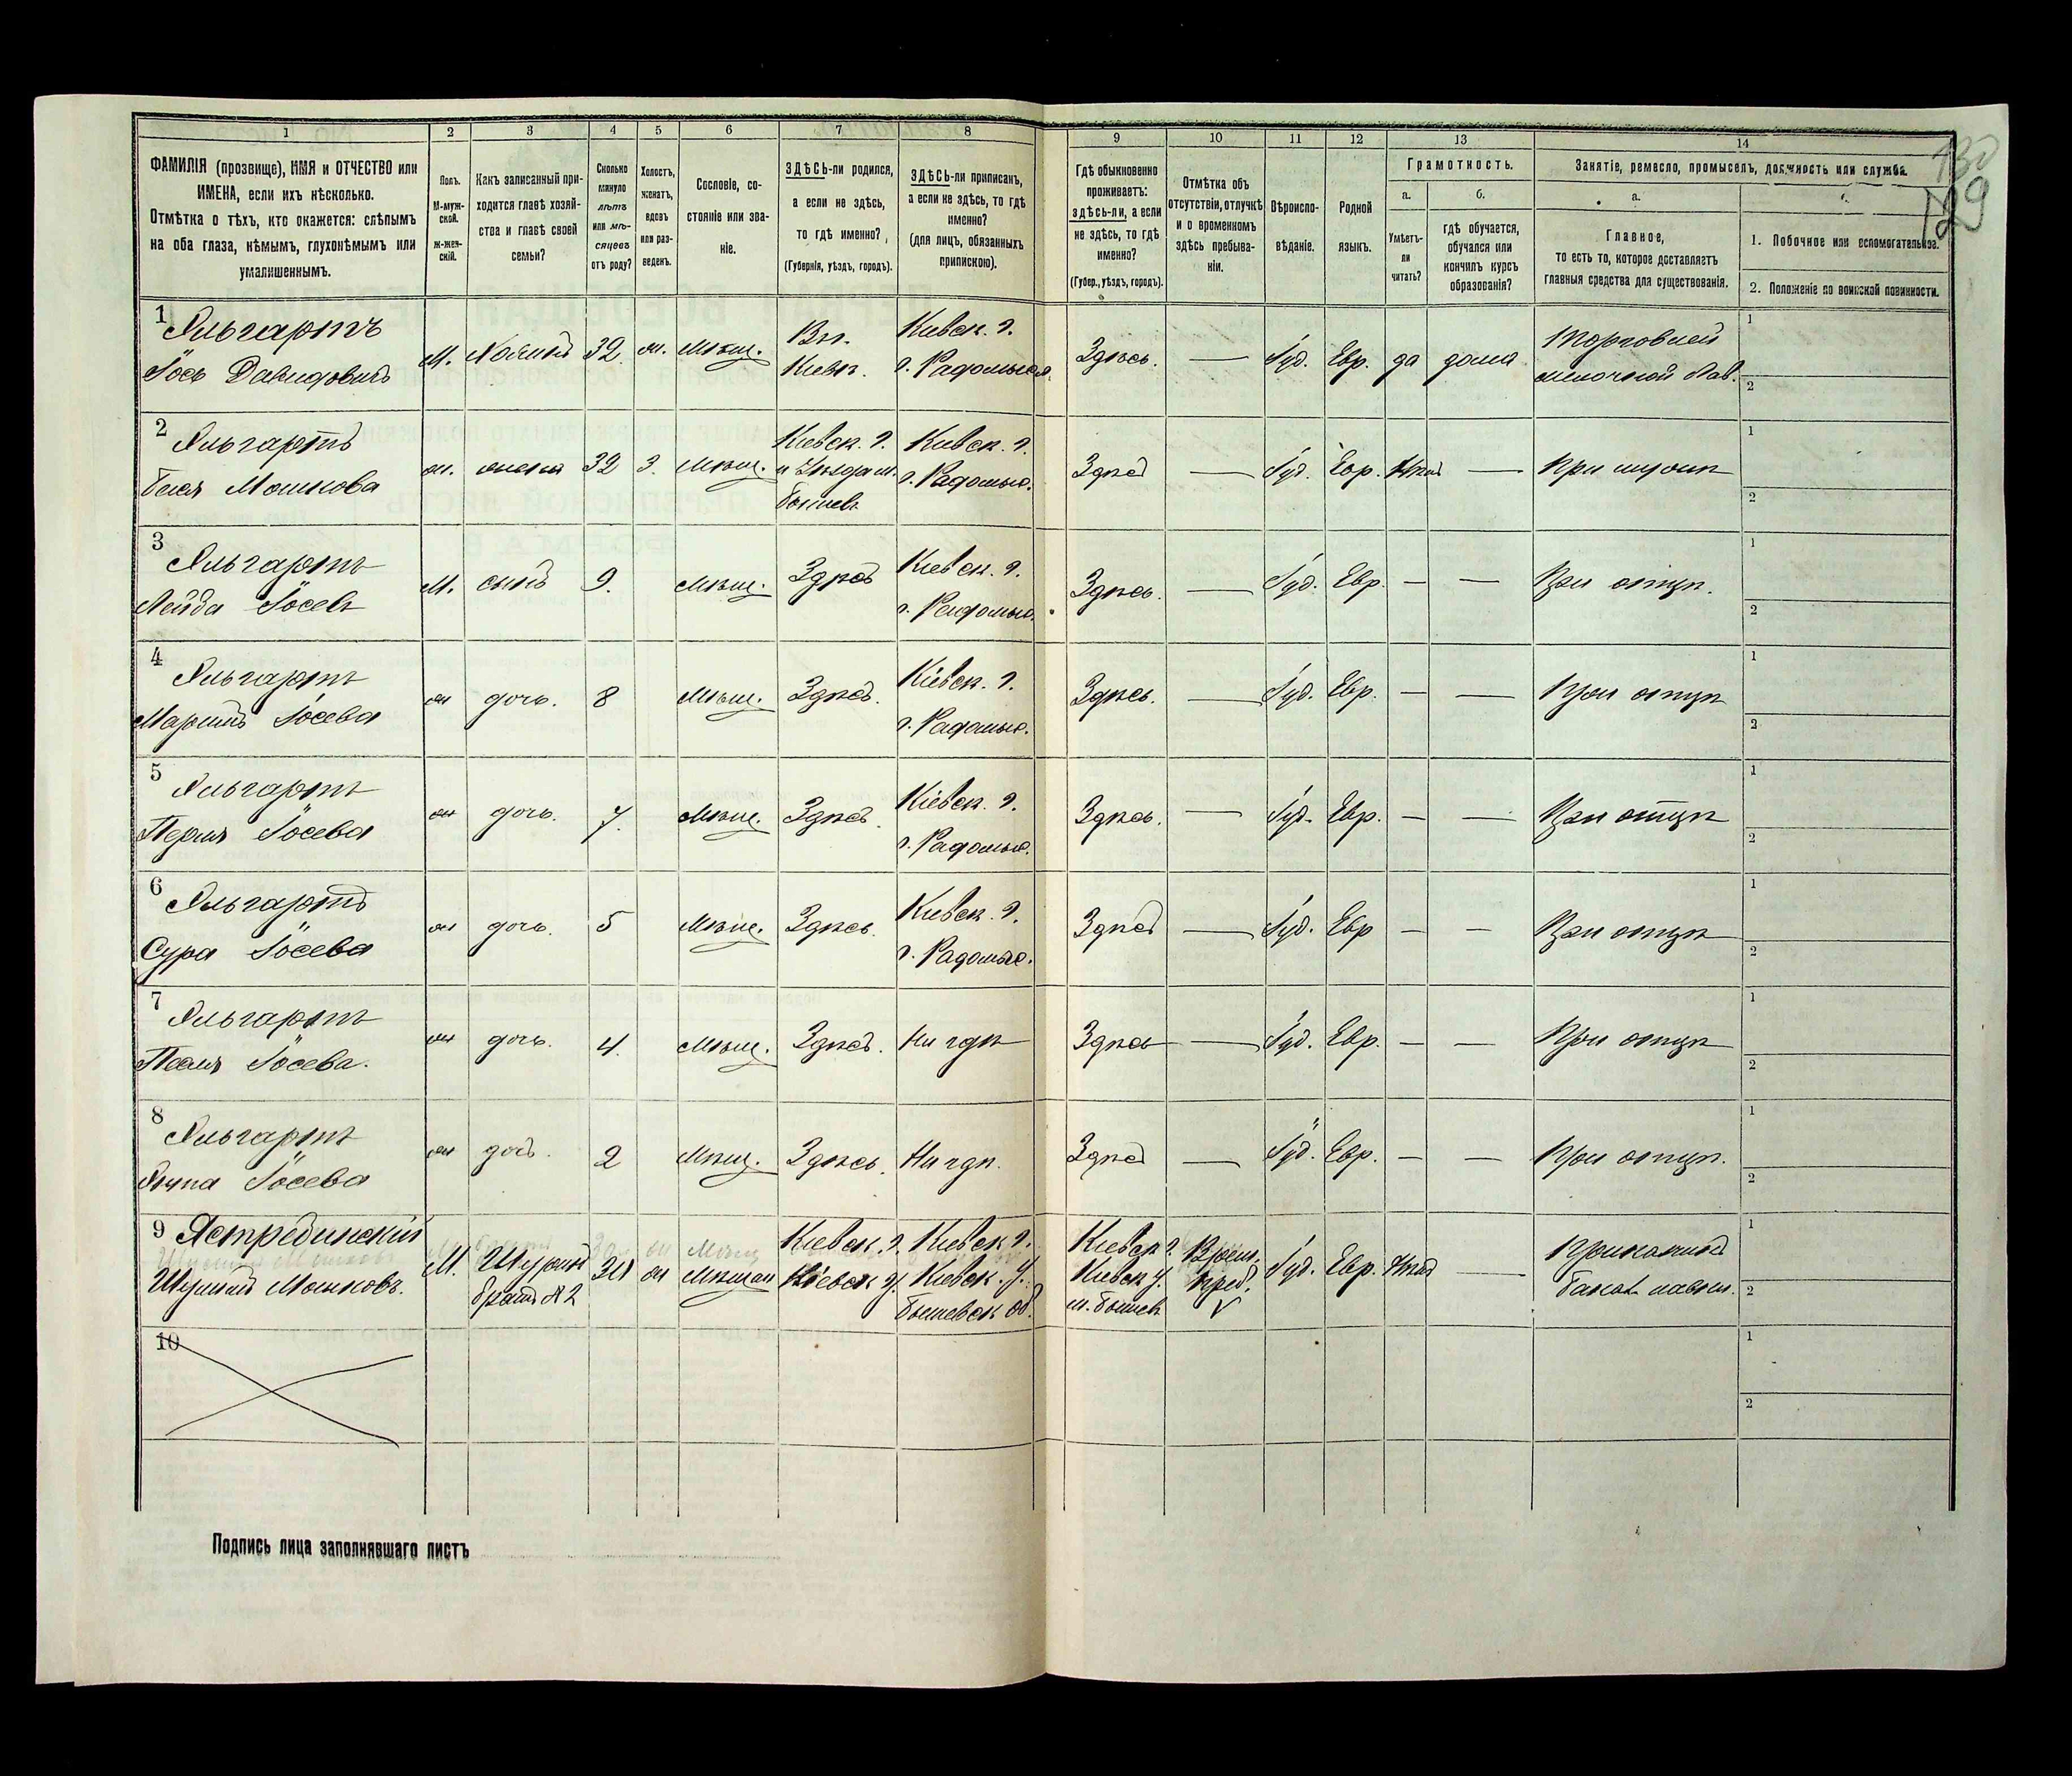 1 2 3 4 5 6 7 8 9 10 11 12 13 14
ФАМИЛІЯ (прозвище), ИМЯ и ОТЧЕСТВО или ИМЕНА, если ихъ нѣсколько.
Отмѣтка о тѣхъ, кто окажется: слѣпымъ на оба глаза, нѣмымъ, глухонѣмымъ или умалишеннымъ.
Полъ. М-мужской. Ж-женскій.
Какъ записанный приходится главѣ хозяйства и главѣ своей семьи?
Сколько минуло лѣтъ или мѣсяцевъ отъ роду?
Холостъ, женатъ, вдовъ или разведенъ.
Сословіе, состояніе или званіе.
ЗДѢСЬ-ли родился, а если не здѣсь, то гдѣ именно? (Губернія, уѣздъ, городъ).
ЗДѢСЬ-ли приписанъ, а если не здѣсь, то гдѣ именно? (для лицъ, обязанныхъ припискою).
Гдѣ обыкновенно проживаетъ: здѣсь-ли, а если не здѣсь, то гдѣ именно? (Губер., уѣздъ, городъ).
Отмѣтка объ отсутствіи, отлучкѣ и о временномъ здѣсь пребываніи.
Вѣроисповѣданіе.
Родной языкъ.
Грамотность.
а. Умѣетъ-ли читать?
б. гдѣ обучается, обучался или кончилъ курсъ образованія?
Занятіе, ремесло, промыселъ, должность или служба.
а. Главное, то есть то, которое доставляетъ главныя средства для существованія.
1. Побочное или вспомогательное.
2. Положеніе по воинской повинности.
130
129
1 Яльгартъ
Іось Давидовичъ М. Хозяинъ 32 ж. Мѣщ. Въ Кіевѣ. Кіевск. г. г. Радомысл. Здѣсь. — Іуд. Евр. да дома Торговлей мелочной лав. 1 2
2 Яльгартъ
Бася Мошкова ж. жена 32 З. Мѣщ. Кіевск. г. и Уѣзда м. Бышевъ Кіевск. г. г. Радомыс. Здѣсь — Іуд. Евр. Нѣтъ — При мужѣ 1 2
3 Яльгартъ
Лейба Іосевъ М. сынъ 9. Мѣщ. Здѣсь Кіевск. г. г. Радомыс. Здѣсь. — Іуд. Евр. — — При отцѣ. 1 2
4 Яльгартъ
Іосева ж дочь. 8 Мѣщ. Здѣсь. Кіевск. г. г. Радомыс. Здѣсь. — Іуд. Евр. — — При отцѣ 1 2
5 Яльгартъ
Перля Іосева ж дочь. 7. Мѣщ. Здѣсь. Кіевск. г. г. Радомыс. Здѣсь. — Іуд. Евр. — — При отцѣ 1 2
6 Яльгартъ
Сура Іосева ж дочь. 5 Мѣщ. Здѣсь. Кіевск. г. г. Радомыс. Здѣсь — Іуд. Евр — — При отцѣ 1 2
7 Яльгартъ
Іосева. ж дочь. 4. Мѣщ. Здѣсь. Ни гдѣ Здѣсь — Іуд. Евр. — — При отцѣ 1 2
8 Яльгартъ
Іосева ж дочь. 2 Мѣщ. Здѣсь. Ни гдѣ. Здѣсь — Іуд. Евр. — — При отцѣ. 1 2
9 Ястребинскій
Мошковъ. М. Шуринъ братъ №2 ж Мѣщан Кіевск. г. Кіевск у. Кіевск г. Кіевск. у. Бышевск об. Кіевск г. Кіевск у. м. Бышевъ Врем. преб. Іуд. Евр. Нѣтъ — 1 2
10 1 2
Подпись лица заполнявшаго листъ